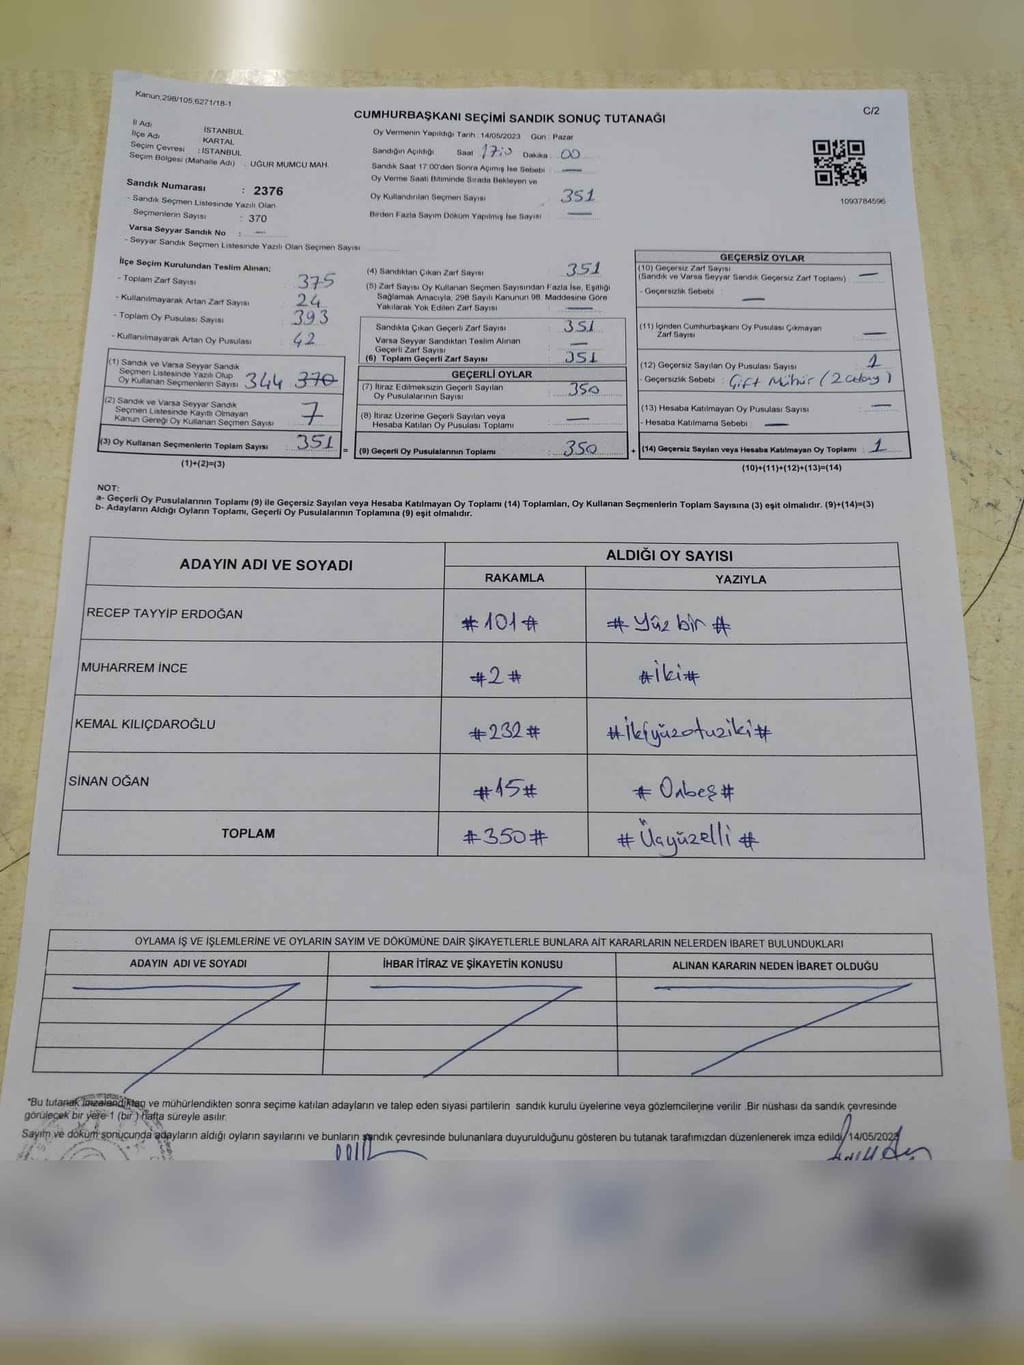 Kanun,298/105,6271/18-1
C/2
CUMHURBAŞKANI SEÇİMİ SANDIK SONUÇ TUTANAĞI
İl Adı İSTANBUL
İlçe Adı KARTAL
Seçim Çevresi : İSTANBUL
Seçim Bölgesi (Mahalle Adı) : UĞUR MUMCU MAH.
Sandık Numarası : 2376
- Sandık Seçmen Listesinde Yazılı Olan
Seçmenlerin Sayısı : 370
Varsa Seyyar Sandık No : —
- Seyyar Sandık Seçmen Listesinde Yazılı Olan Seçmen Sayısı
Oy Vermenin Yapıldığı Tarih : 14/05/2023 Gün : Pazar
Sandığın Açıldığı Saat Dakika 00
Sandık Saat 17:00'den Sonra Açımış İse Sebebi : —
Oy Verme Saati Bitiminde Sırada Bekleyen ve
Oy Kullandırılan Seçmen Sayısı 351
Birden Fazla Sayım Döküm Yapılmış İse Sayısı —
1093784596
İlçe Seçim Kurulundan Teslim Alınan;
- Toplam Zarf Sayısı 375
- Kullanılmayarak Artan Zarf Sayısı 24
- Toplam Oy Pusulası Sayısı 393
- Kullanılmayarak Artan Oy Pusulası 42
(1) Sandık ve Varsa Seyyar Sandık
Seçmen Listesinde Yazılı Olup
Oy Kullanan Seçmenlerin Sayısı 344 370
(2) Sandık ve Varsa Seyyar Sandık
Seçmen Listesinde Kayıtlı Olmayan
Kanun Gereği Oy Kullanan Seçmen Sayısı 7
(3) Oy Kullanan Seçmenlerin Toplam Sayısı 351 =
(1)+(2)=(3)
(4) Sandıktan Çıkan Zarf Sayısı 351
(5) Zarf Sayısı Oy Kullanan Seçmen Sayısından Fazla İse, Eşitliği
Sağlamak Amacıyla, 298 Sayılı Kanunun 98. Maddesine Göre
Yakılarak Yok Edilen Zarf Sayısı —
Sandıkta Çıkan Geçerli Zarf Sayısı 351
Varsa Seyyar Sandıktan Teslim Alınan
Geçerli Zarf Sayısı —
(6) Toplam Geçerli Zarf Sayısı 351
GEÇERLİ OYLAR
(7) İtiraz Edilmeksizin Geçerli Sayılan
Oy Pusulalarının Sayısı 350
(8) İtiraz Üzerine Geçerli Sayılan veya
Hesaba Katılan Oy Pusulası Toplamı —
(9) Geçerli Oy Pusulalarının Toplamı 350 +
GEÇERSİZ OYLAR
(10) Geçersiz Zarf Sayısı
(Sandık ve Varsa Seyyar Sandık Geçersiz Zarf Toplamı) —
- Geçersizlik Sebebi : —
(11) İçinden Cumhurbaşkanı Oy Pusulası Çıkmayan
Zarf Sayısı —
(12) Geçersiz Sayılan Oy Pusulası Sayısı 1
- Geçersizlik Sebebi : Çift Mühür (2 aday)
(13) Hesaba Katılmayan Oy Pusulası Sayısı —
- Hesaba Katılmama Sebebi : —
(14) Geçersiz Sayılan veya Hesaba Katılmayan Oy Toplamı 1
(10)+(11)+(12)+(13)=(14)
NOT:
a- Geçerli Oy Pusulalarının Toplamı (9) ile Geçersiz Sayılan veya Hesaba Katılmayan Oy Toplamı (14) Toplamları, Oy Kullanan Seçmenlerin Toplam Sayısına (3) eşit olmalıdır. (9)+(14)=(3)
b- Adayların Aldığı Oyların Toplamı, Geçerli Oy Pusulalarının Toplamına (9) eşit olmalıdır.
ADAYIN ADI VE SOYADI ALDIĞI OY SAYISI
RAKAMLA YAZIYLA
RECEP TAYYİP ERDOĞAN #101# # Yüz bir #
MUHARREM İNCE #2# #İki#
KEMAL KILIÇDAROĞLU #232# #İkiyüzotuziki#
SİNAN OĞAN #15# # Onbeş #
TOPLAM #350# # Üçyüzelli #
OYLAMA İŞ VE İŞLEMLERİNE VE OYLARIN SAYIM VE DÖKÜMÜNE DAİR ŞİKAYETLERLE BUNLARA AİT KARARLARIN NELERDEN İBARET BULUNDUKLARI
ADAYIN ADI VE SOYADI İHBAR İTİRAZ VE ŞİKAYETİN KONUSU ALINAN KARARIN NEDEN İBARET OLDUĞU
*Bu tutanak imzalandıktan ve mühürlendikten sonra seçime katılan adayların ve talep eden siyasi partilerin sandık kurulu üyelerine veya gözlemcilerine verilir .Bir nüshası da sandık çevresinde
görülecek bir yere 1 (bir ) hafta süreyle asılır.
Sayım ve döküm sonucunda adayların aldığı oyların sayılarını ve bunların sandık çevresinde bulunanlara duyurulduğunu gösteren bu tutanak tarafımızdan düzenlenerek imza edildi. 14/05/2023